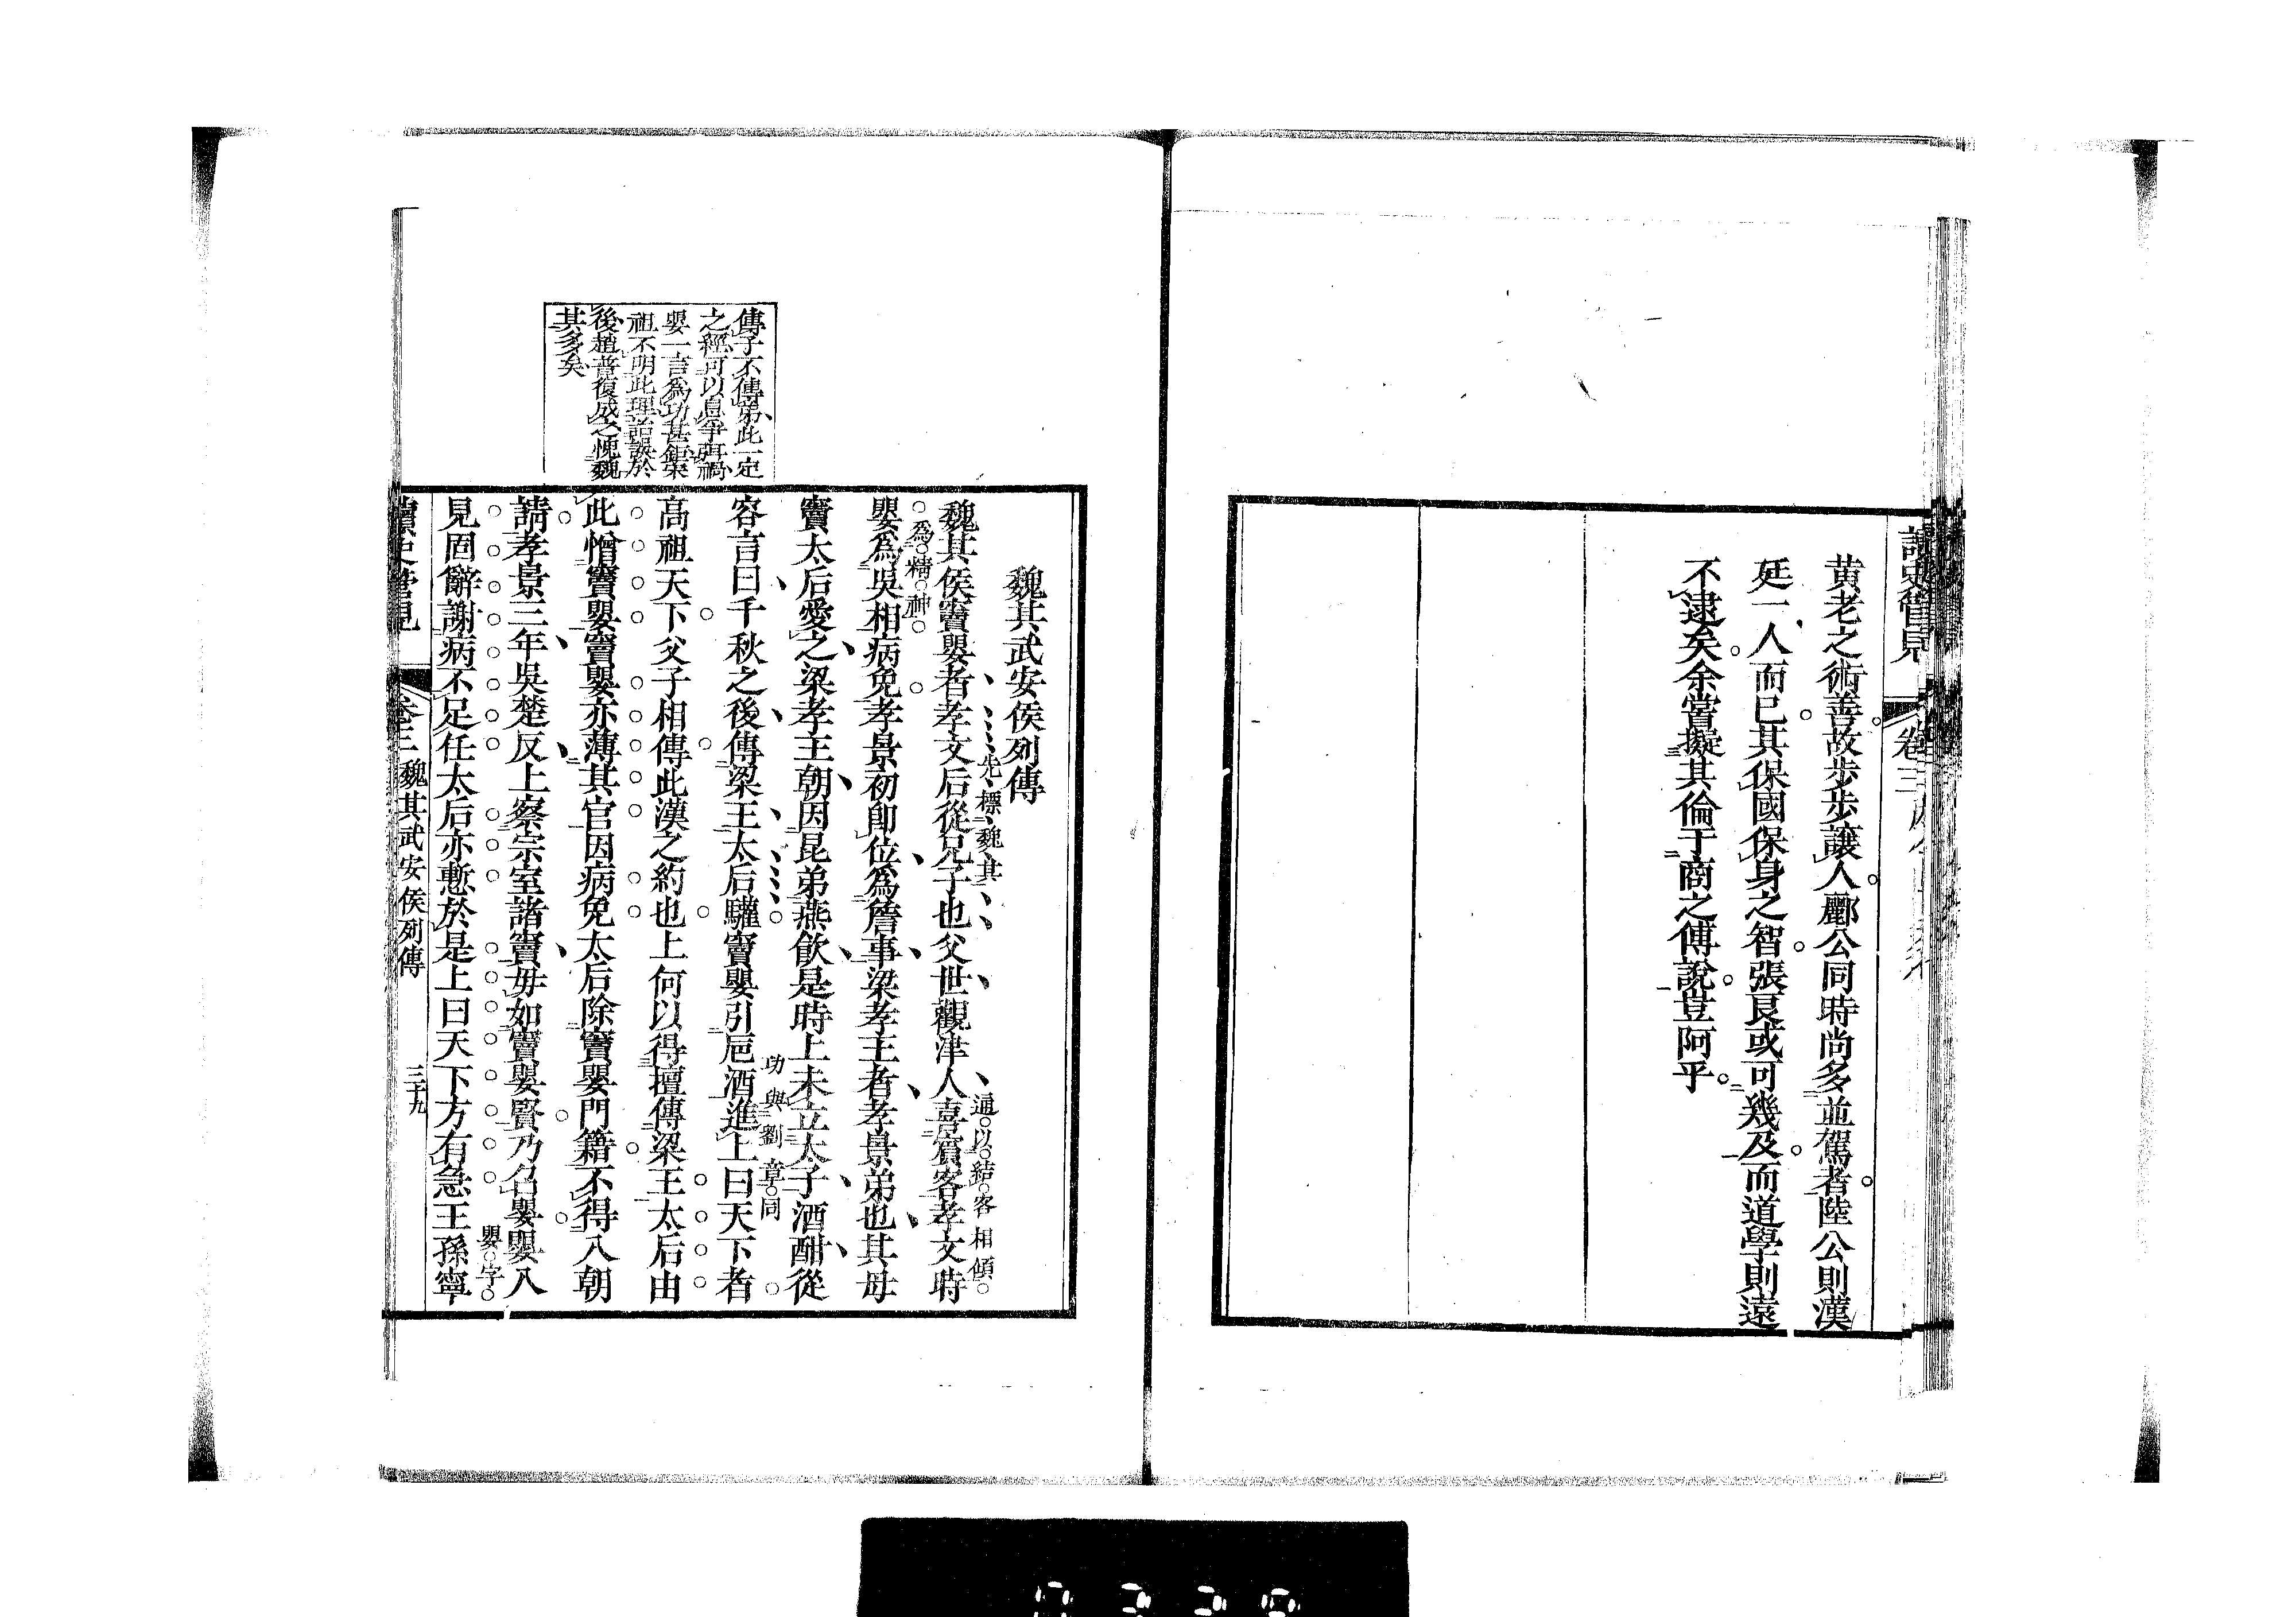 讀史管見
卷三
黃老之術善故步步讓人酈公同時尚多並駕者陸公則漢
廷一人而已其保國保身之智張良或可幾及而道學則遠
不逮矣余嘗擬其倫于商之傅說豈阿乎
魏其武安侯列傳
先標魏其
通以結客相傾
魏其侯竇嬰者孝文后從兄子也父世觀津人喜賓客孝文時
為精神
嬰為吳相病免孝景初即位為詹事梁孝王者孝景弟也其母
竇太后愛之梁孝王朝因昆弟燕飲是時上未立太子酒酣從
功與劉章同
容言曰千秋之後傳梁王太后驩竇嬰引卮酒進上曰天下者
高祖天下父子相傳此漢之約也上何以得擅傳梁王太后由
此憎竇嬰竇嬰亦薄其官因病免太后除竇嬰門籍不得入朝
請孝景三年吳楚反上察宗室諸竇毋如竇嬰賢乃召嬰嬰入
嬰字
見固辭謝病不足任太后亦慙於是上曰天下方有急王孫寧
傳子不傳弟此一定
之經可以息爭弭禍
嬰一言為功甚鉅宋
祖不明此理詒誤於
後趙普復成之愧魏
其多矣
讀史管見
卷三
魏其武安侯列傳
三十九